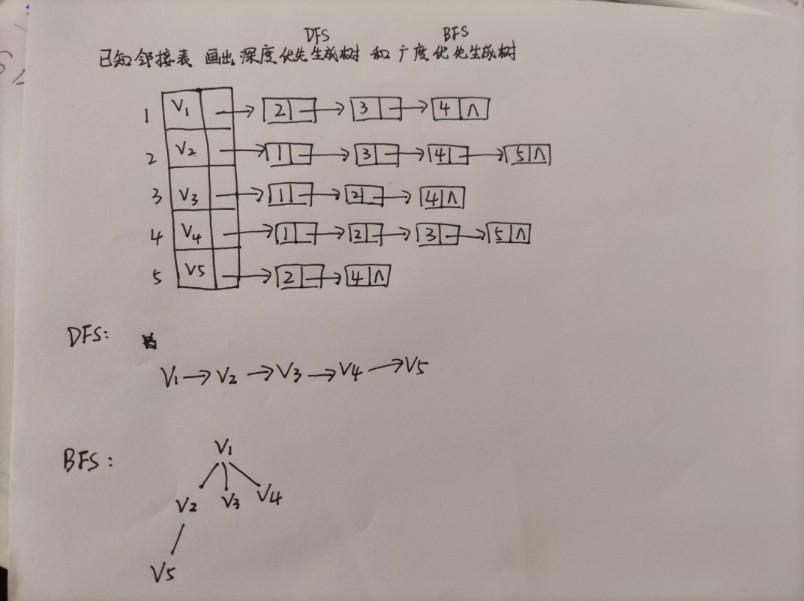 DFS BFS
已知邻接表 画出深度优先生成树 和 广度优先生成树
1 V1 → 2 → 3 → 4 ∧
2 V2 → 1 → 3 → 4 → 5 ∧
3 V3 → 1 → 2 → 4 ∧
4 V4 → 1 → 2 → 3 → 5 ∧
5 V5 → 2 → 4 ∧
DFS:
V1 → V2 → V3 → V4 → V5
BFS:
V1
V2 V3 V4
V5